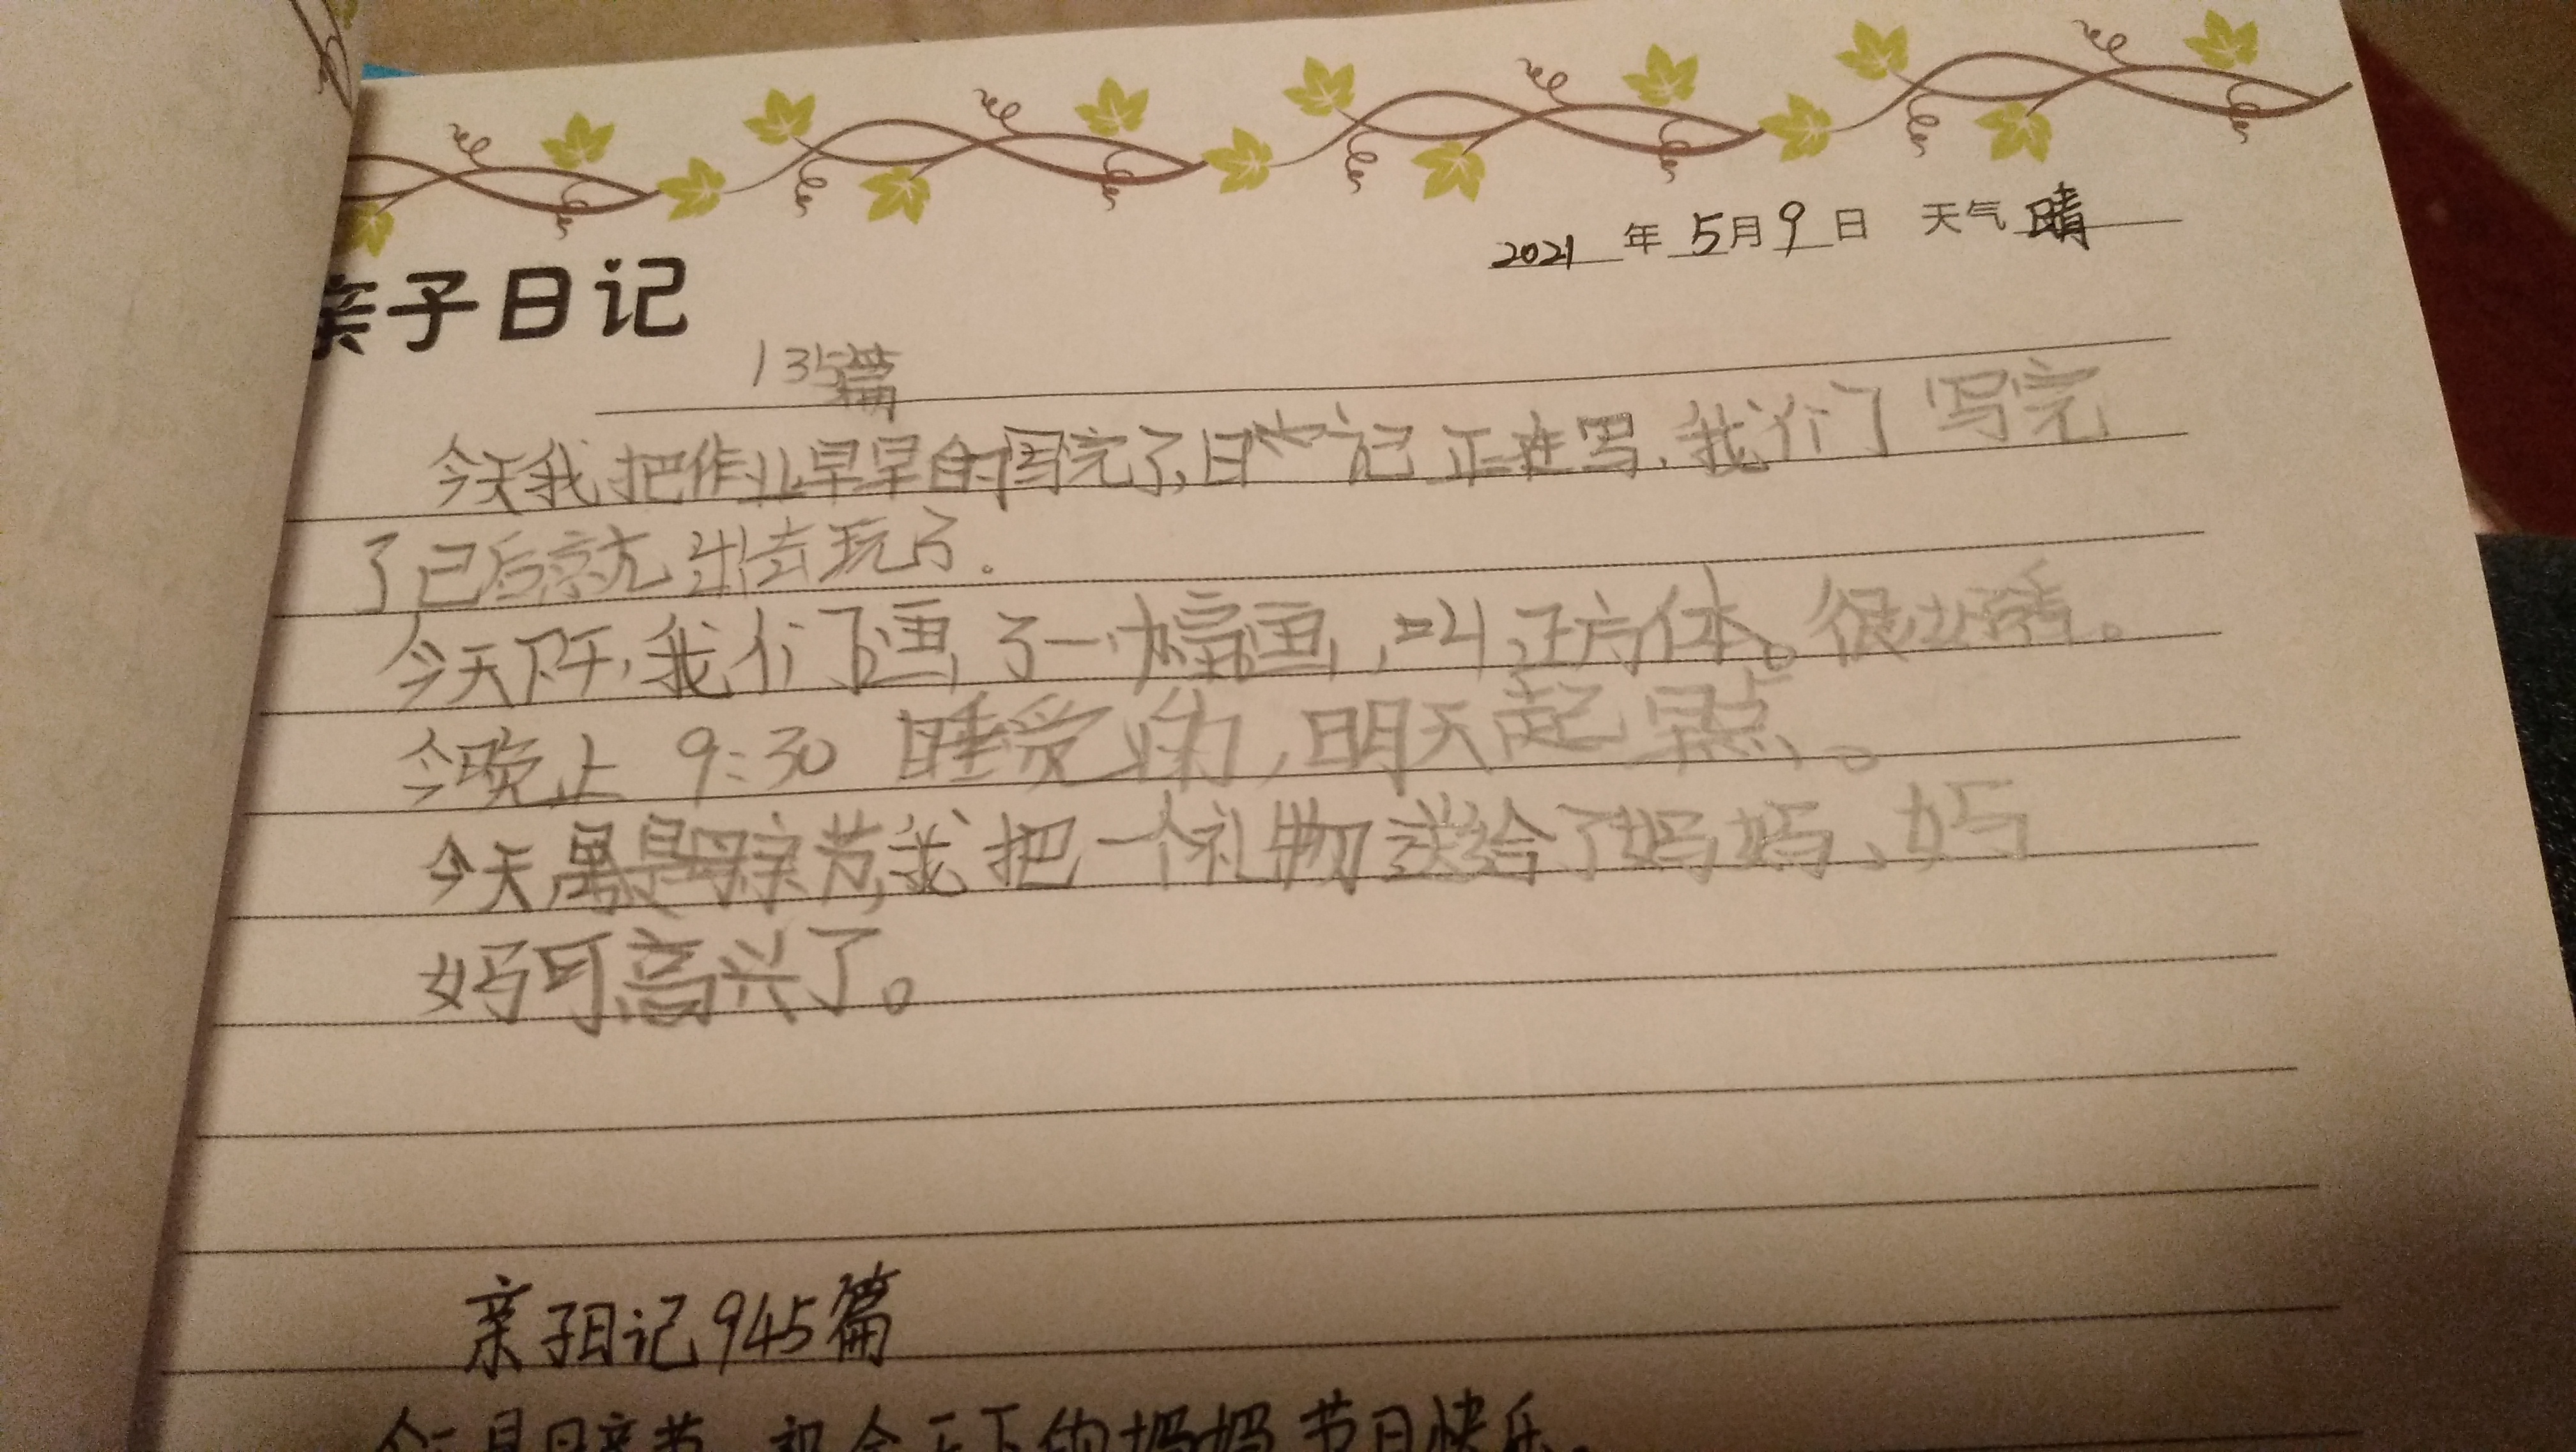 2021 年 5 月 9 日 天气 晴
亲子日记
135篇
今天我把作业早早的写完了,日记正在写,我们写完
了已后就出去玩了.
今天下午,我们画了一幅画,叫正方体。很好看。
今晚上 9:30 睡觉,明天起早点。
今天是母亲节,我把一个礼物送给了妈妈,妈
妈可高兴了。
亲子日记945篇
今天是母亲节,祝全天下的妈妈节日快乐.